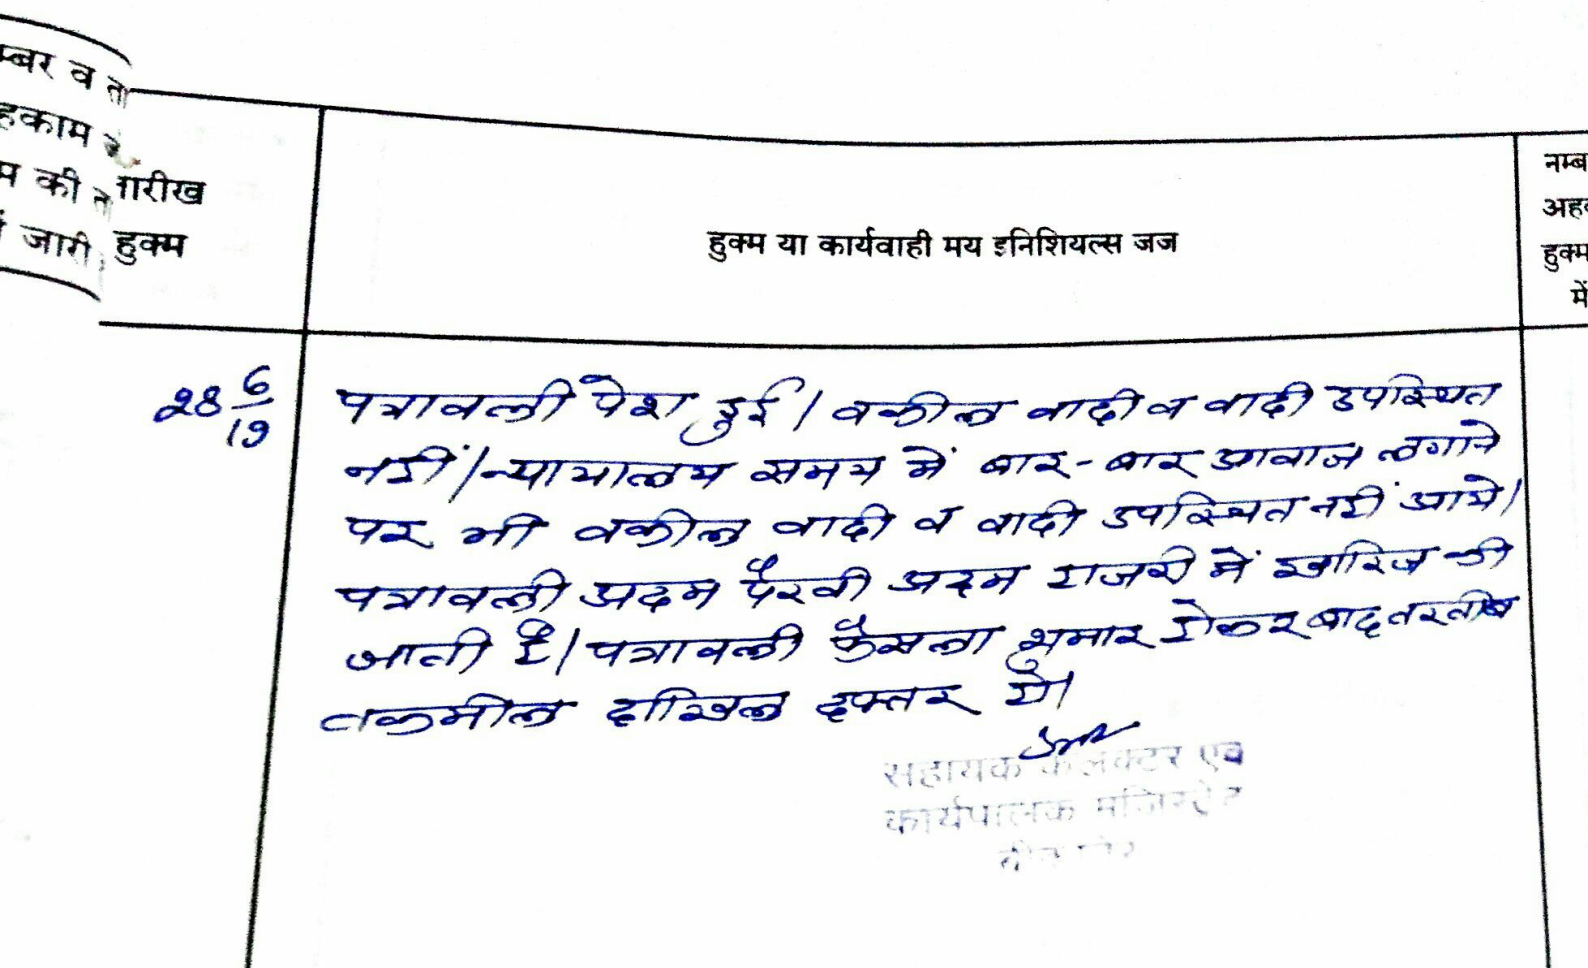 म्बर व ता
हकाम
म की
जारी
तारीख
हुक्म
हुक्म या कार्यवाही मय इनिशियल्स जज
नम्ब
अह
हुक्म
में
28 6/19
पत्रावली पेश हुई। वकील वादी व वादी उपस्थित
नहीं। न्यायालय समय में बार-बार आवाज लगाने
पर भी वकील वादी व वादी उपस्थित नहीं आये।
पत्रावली अदम पैरवी अदम हाजरी में खारिज की
जाती है। पत्रावली फैसला शुमार होकर बाद तरतीब
तकमील दाखिल दफ्तर हो।
सहायक कलक्टर एवं
कार्यपालक मजिस्ट्रेट